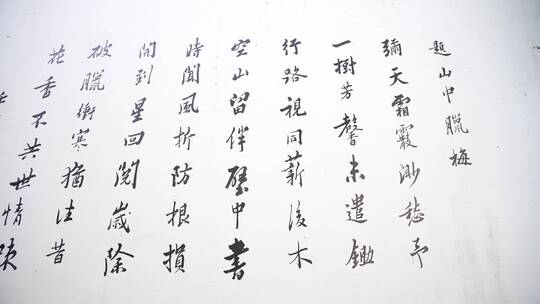 題山中臘梅
彌天霜霰渺愁予
一樹芳馨未遣鋤
行路視同薪後木
空山留伴壁中書
時聞風折防根損
開到星回閱歲除
破臘衝寒猶往昔
花香不共世情疎